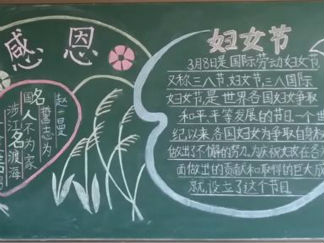 感恩
赵一曼
誓志为
国
名
人不为家
涉江
渡海
妇女节
3月8日是国际劳动妇女节
又称三八节妇女节三八国际
妇女节,是世界各国妇女争取
和平平等发展的节日,一个世
纪以来各国妇女为争取自身权
做出了不懈的努力,为庆祝女孩在各
面做出的贡献和取得的巨大成
就,设立了这个节日